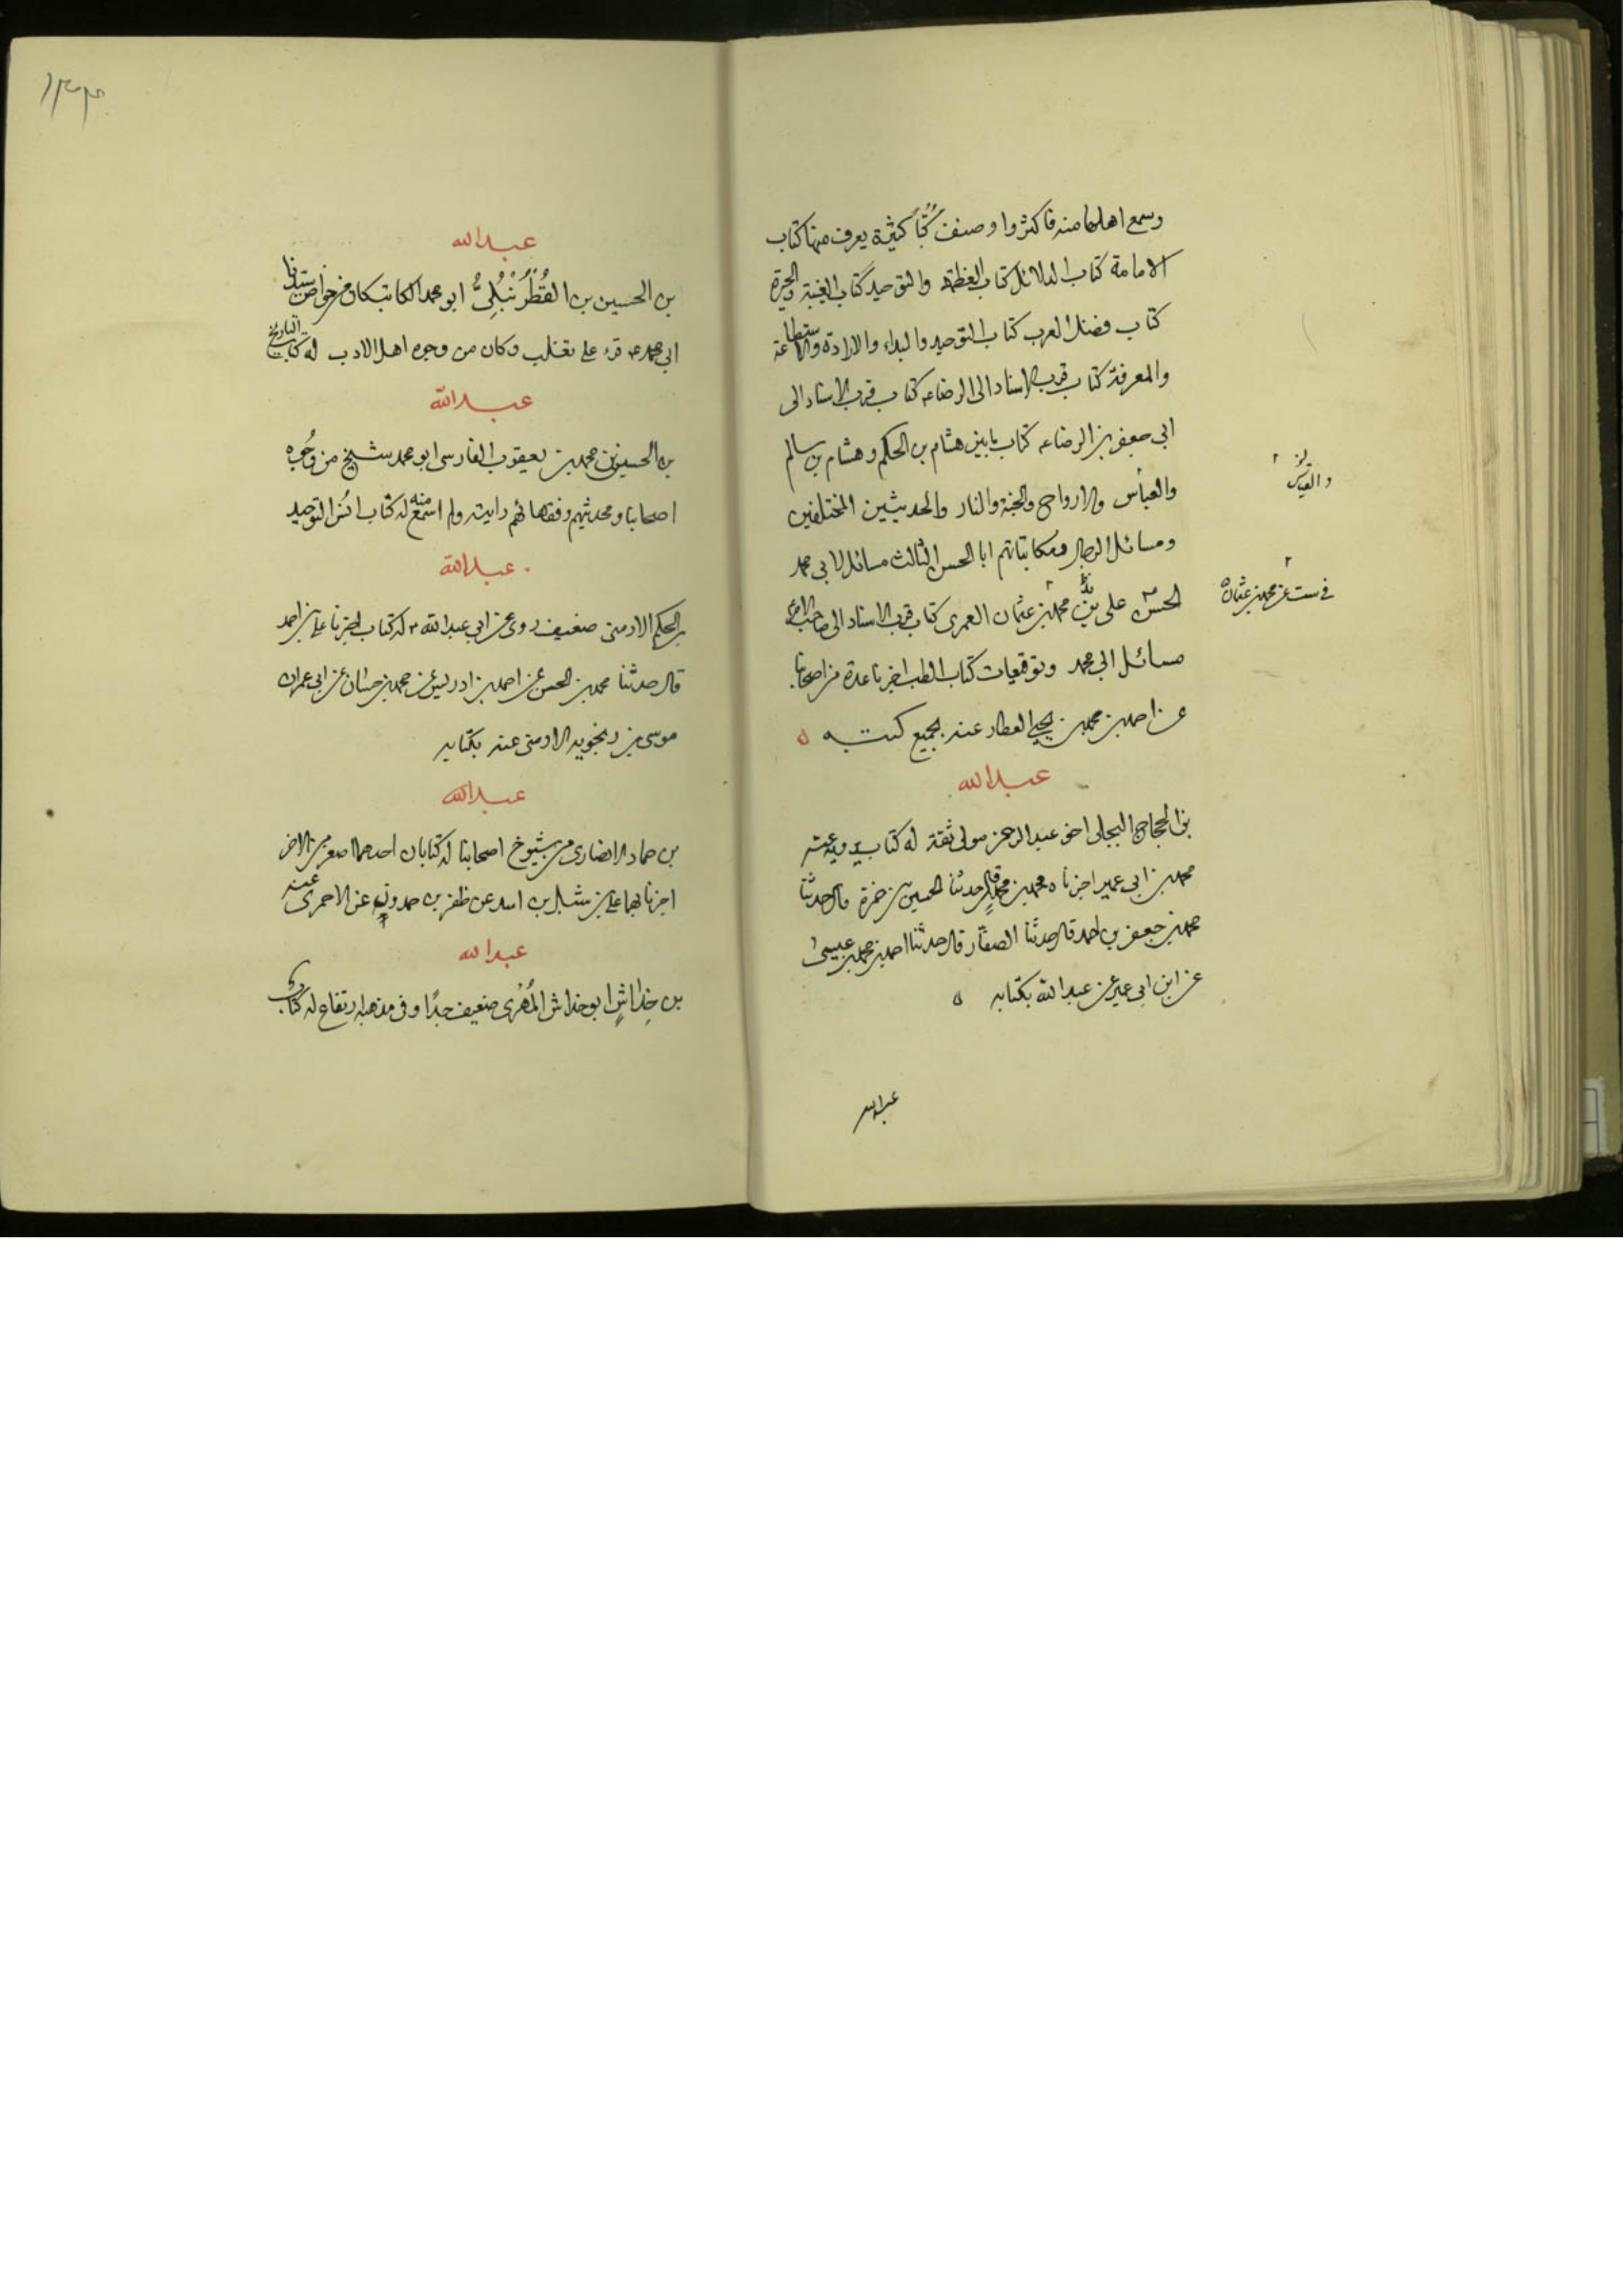 وسمع اهلها منه فاكثروا وصنف كُتُباً كثيرة يعرف منها كتاب
الامامة كتاب الدلائل كتاب العظمة والتوحيد كتاب الغيبة والحيرة
كتاب فضل العرب كتاب التوحيد والبداء والارادة والاستطاعة
والمعرفة كتاب قرب الاسناد الى الرضا عه كتاب قرب الاسناد الى
ابى جعفر بن الرضا عه كتاب ما بين هشام بن الحكم وهشام بن سالم
والعباس والارواح والجنة والنار والحديثين المختلفين
والقياس
ومسائل الرجال ومكاتباتهم ابا الحسن الثالث مسائل لابى محمد
الحسن على يد محمد بن عثمان العمرى كتاب قرب الاسناد الى صاحب الامر
فى ست عن محمد بن عثمان
مسائل ابى محمد وتوقيعات كتاب الطب اخبرنا عدة من اصحابنا
عن احمد بن محمد بن يحيى العطار عنه بجميع كتبه ه
عبدالله
بن الحجاج البجلى اخو عبد الرحمن مولى ثقة له كتاب يرويه عنه
محمد بن ابى عمير اخبرناه محمد بن محمد قال حدثنا الحسين بن حمزة قال حدثنا
محمد بن جعفر بن احمد قال حدثنا الصفّار قال حدثنا احمد بن محمد بن عيسى
عن ابن ابى عمير عن عبدالله بكتابه ه
عبدالله
عبدالله
بن الحسين بن القُطْرُنْبُلِىُّ ابو محمد الكاتب كان من خواص سيدنا
ابى محمد عه قرء على تغلب وكان من وجوه اهل الادب له كتاب التاريخ
عبدالله
بن الحسين بن محمد بن يعقوب الفارسى ابو محمد شيخ من وُجُوه
اصحابنا ومحدثيهم وفقهائهم رايته ولم اسمع منه له كتاب انس التوحيد
عبدالله
بن الحكم الارمنى ضعيف روى عن ابى عبدالله ٣ له كتاب اخبرنا على بن احمد
قال حدثنا محمد بن الحسن عن احمد بن ادريس عن محمد بن حسان عن ابى عمران
موسى بن رنجويه الارمنى عنه بكتابه
عبدالله
بن حماد الانصارى من شيوخ اصحابنا له كتابان احدهما اصغر من الاخر
اخبرنا بهما على بن شبل بن اسد عن ظفر بن حمدون عن الاحمرى عنه
عبدالله
بن خِداشٍ ابو خداش المُهْرى ضعيف جدًا وفى مذهبه ارتفاع له كتاب